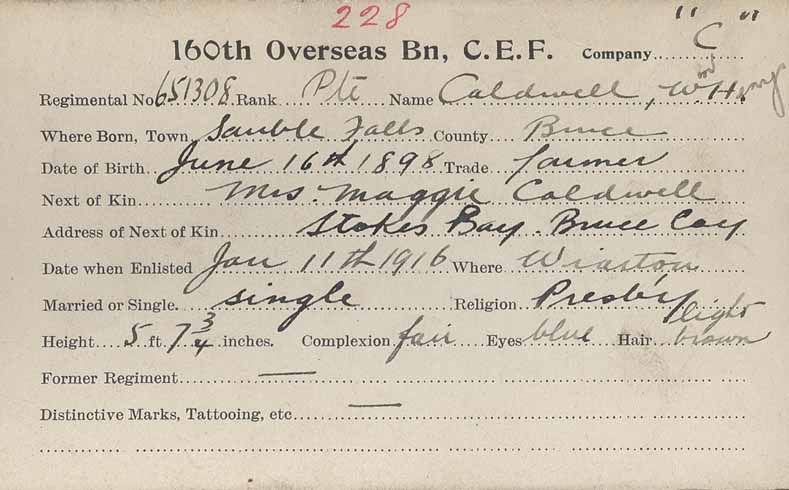 228
160th Overseas Bn, C.E.F. Company "C"
Regimental No. 651308 Rank Pte Name Caldwell, Wm Henry
Where Born, Town, Sauble Falls County Bruce
Date of Birth June 16th 1898 Trade farmer
Next of Kin Mrs. Maggie Caldwell
Address of Next of Kin Stokes Bay. Bruce Coy
Date when Enlisted Jan 11th 1916 Where Wiarton
Married or Single. single Religion Presby
Height 5 ft. 7 3/4 inches. Complexion fair Eyes blue Hair light brown
Former Regiment —
Distinctive Marks, Tattooing, etc —